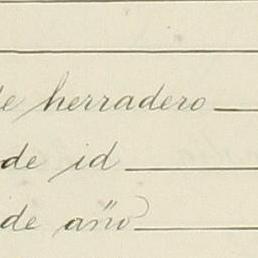 de herradero
de id
de año